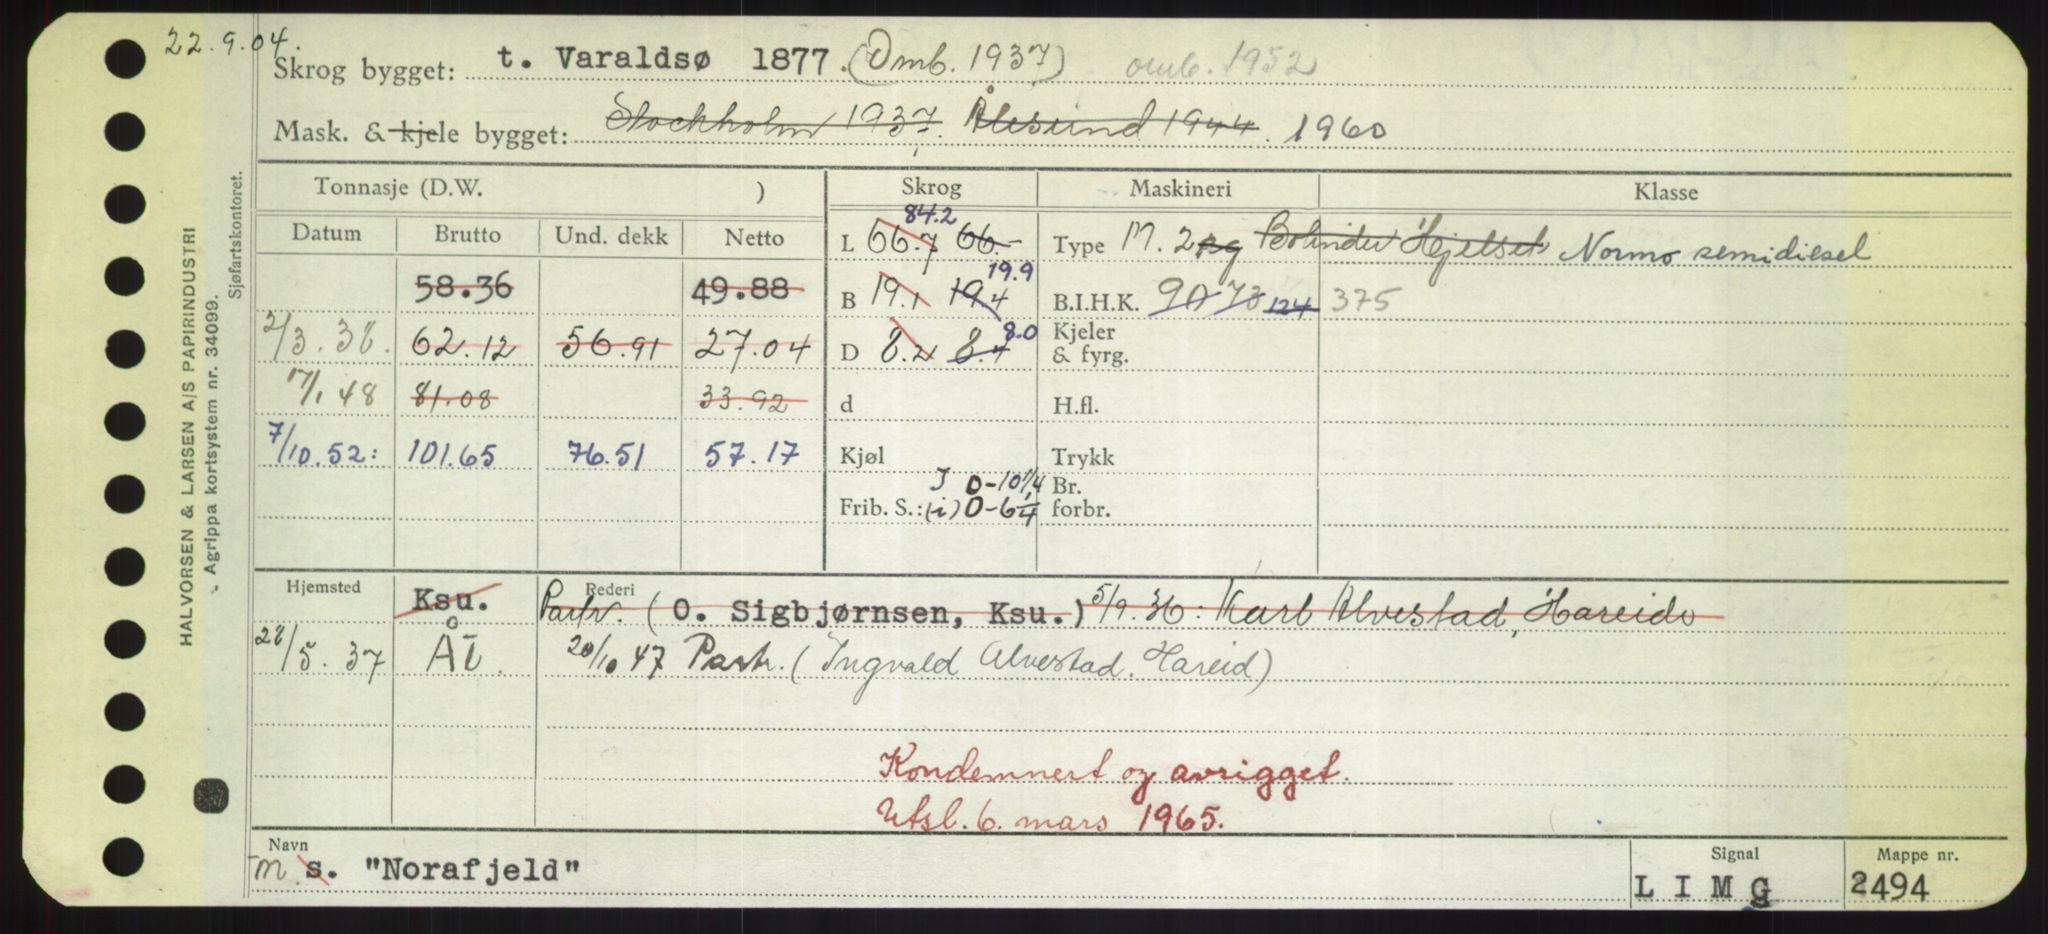 22.9.04.
Skrog bygget: t. Varaldsø 1877 (Omb. 1937) omb. 1952
Mask. & kjele bygget: Stockholm 1937. Ålesund 1944. 1960
Tonnasje (D.W. ) Skrog Maskineri Klasse
Datum Brutto Und. dekk Netto
84.2
L 66.7 66.- Type M. 2 Bolinder Hjelset Normo semidiesel
58.36 49.88
19.9
B 19.1 19.4 B.I.H.K. 90 73 124 375
2/3.38. 62.12 56.91 27.04
8.0
D 8.2 8.4 Kjeler & fyrg.
17/1 48 81.08 33.92 d H.fl.
7/10.52: 101.65 76.51 57.17 Kjøl Trykk
I 0-10 1/4 Br.
Frib. S.: (i) 0-6 1/4 forbr.
Hjemsted Rederi
Ksu. Partr. (O. Sigbjørnsen, Ksu.) 5/9.36: Karl Alvestad, Hareide
28/5.37 Ål. 20/10 47 Partr. (Ingvald Alvestad. Hareid)
Kondemnert og avrigget.
Utsl. 6. mars 1965.
Navn Signal Mappe nr.
m s. "Norafjeld" L I M G 2494
HALVORSEN & LARSEN A/S PAPIRINDUSTRI
Agrippa kortsystem nr. 34099.
Sjøfartskontoret.